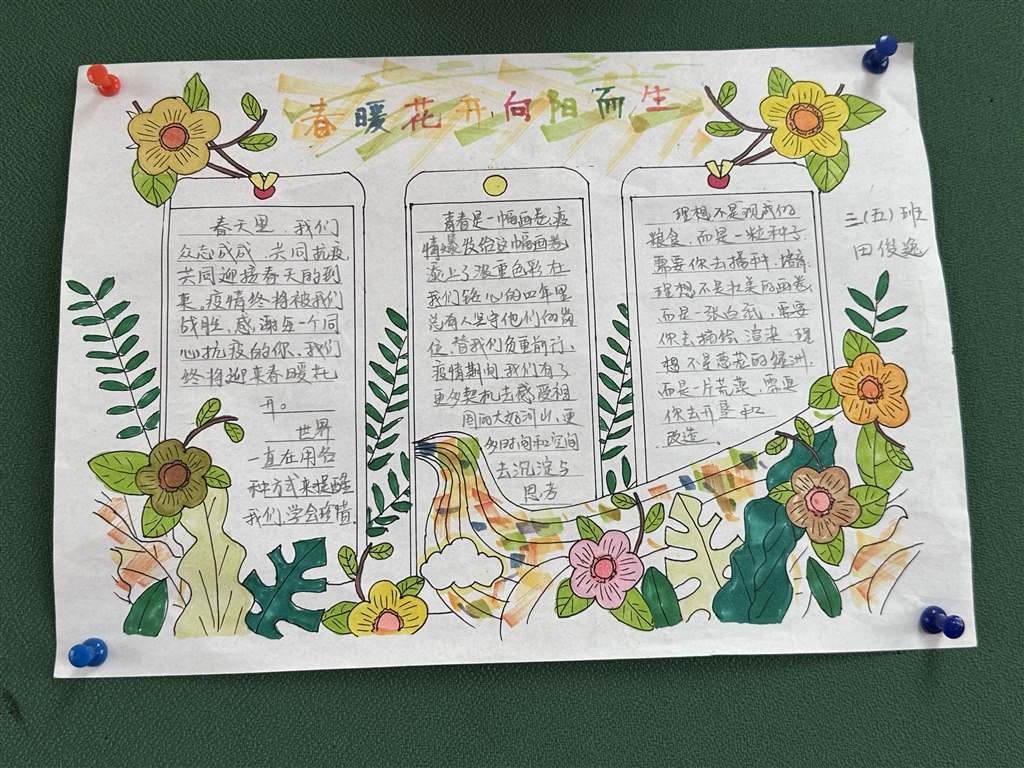 春暖花开,向阳而生
三(五)班
田俊逸
春天里,我们
众志成成,共同抗疫,
共同迎接春天的到
来。疫情终将被我们
战胜,感谢每一个同
心抗疫的你,我们
终将迎来春暖花
开。
世界
一直在用各
种方式来提醒
我们,学会珍惜
青春是一幅画卷,疫
情爆发给这幅画卷
添上了浓重色彩,在
我们铭心的四年里
总有人坚守他们的岗
位,替我们负重前行,
疫情期间,我们有了
更多契机去感受祖
国的大好河山,更
多时间和空间
去沉淀与
思考
理想不是现成的
粮食,而是一粒种子,
需要你去播种,培育,
理想不是壮美的画卷,
而是一张白纸,需要
你去描绘渲染,理
想不是葱茏的绿洲,
而是一片荒漠,需要
你去开垦和
改造。